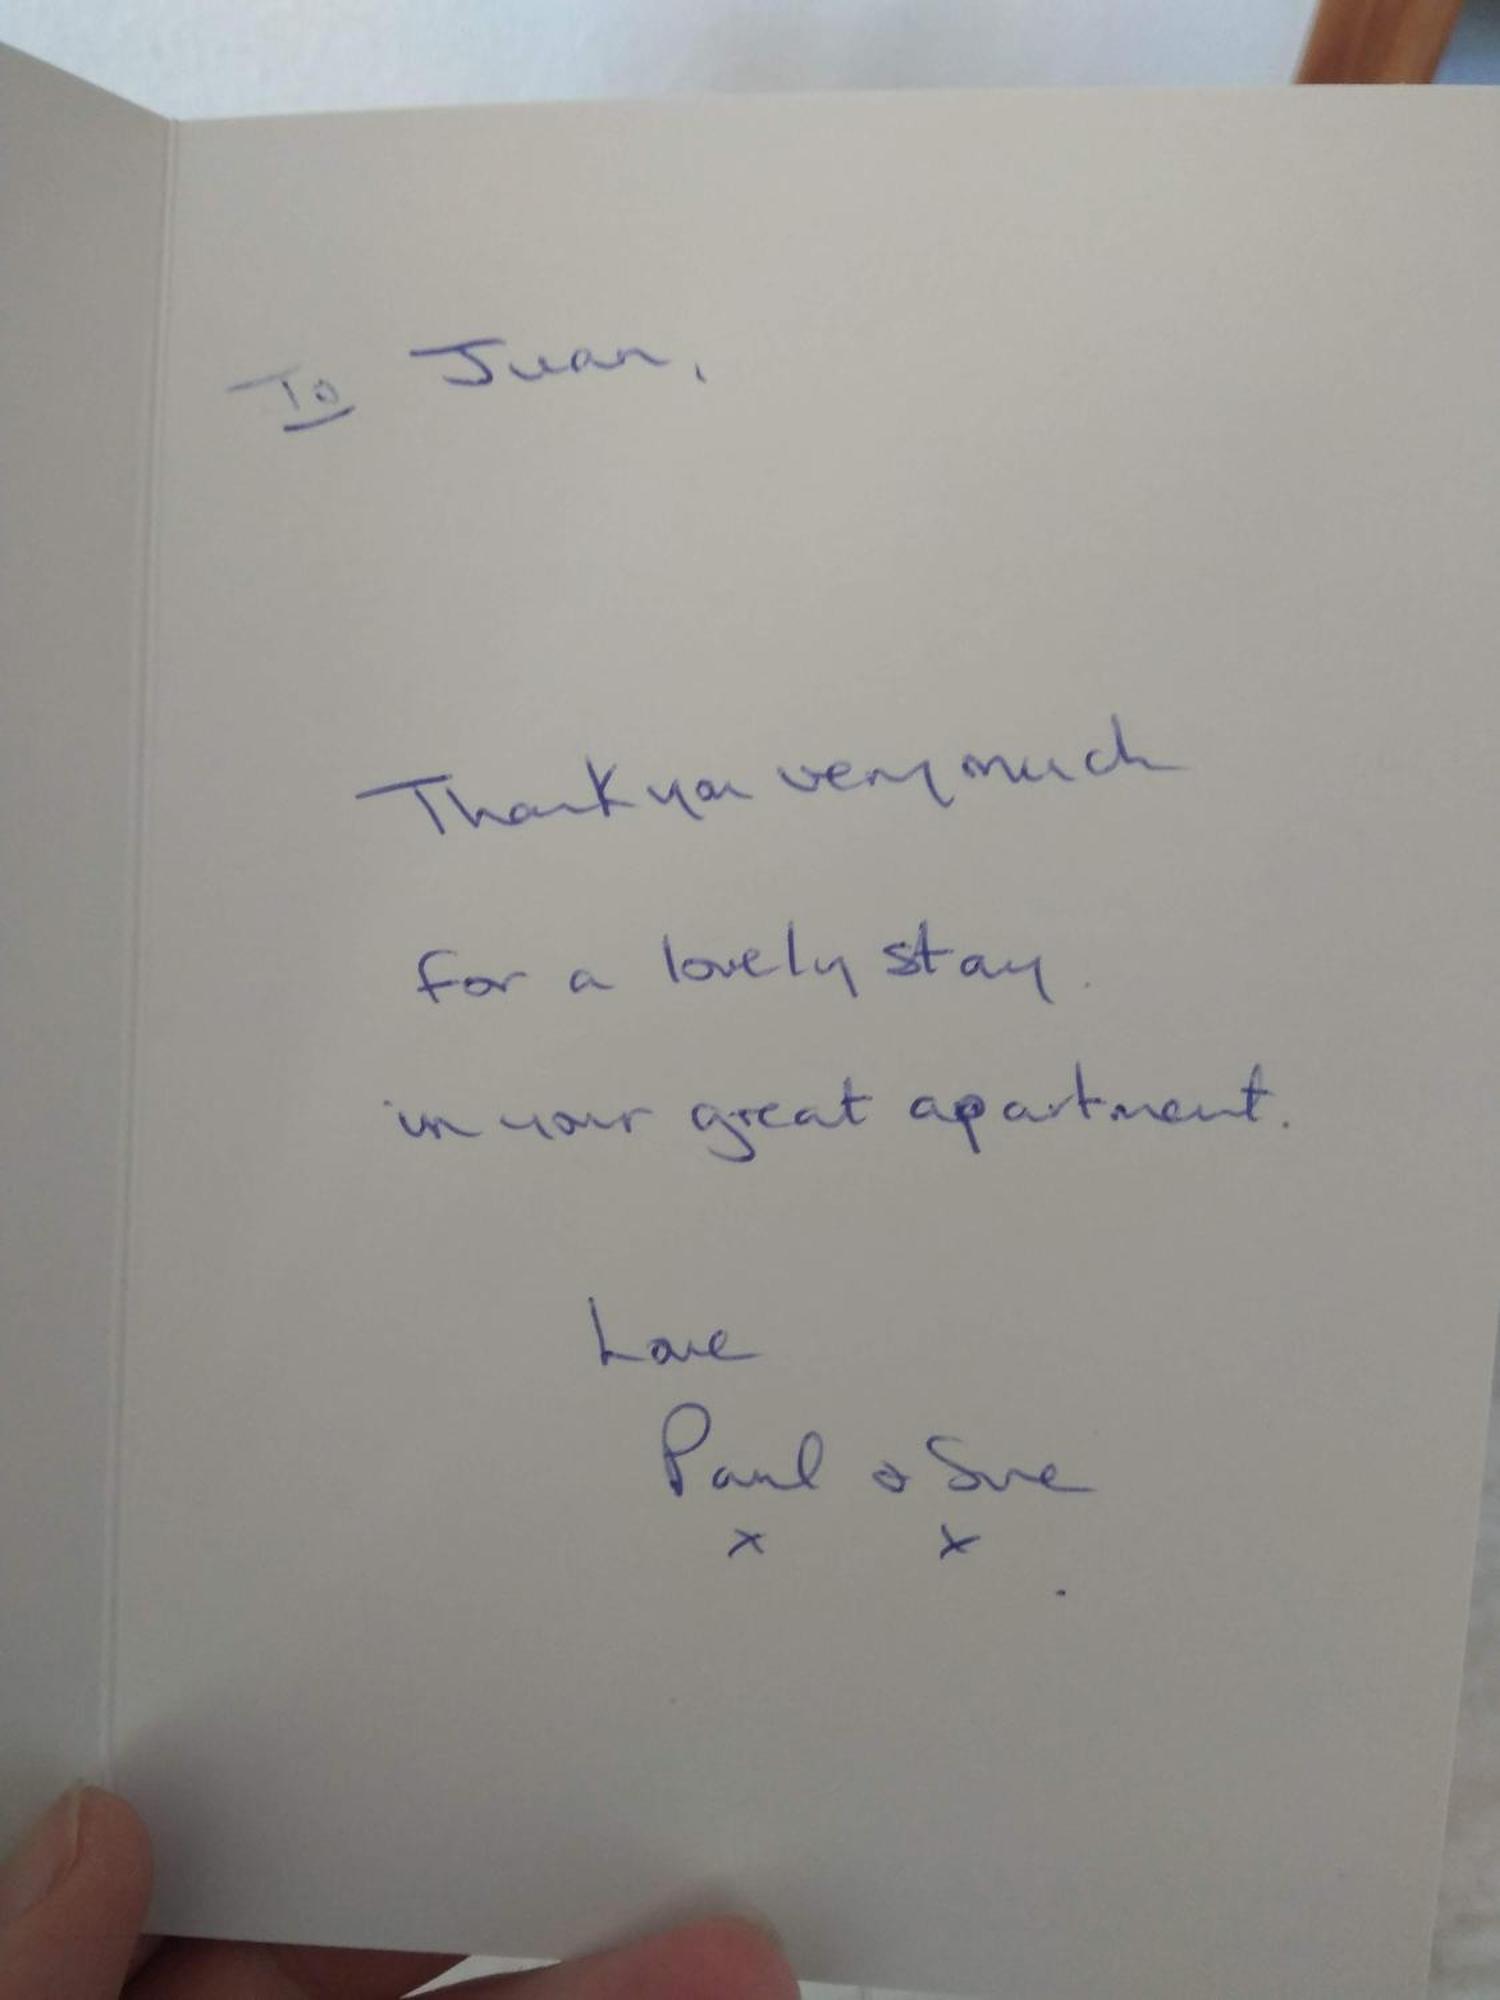 To Juan,
Thank you very much
for a lovely stay.
in your great apartment.
Love
Paul & Sue
x x